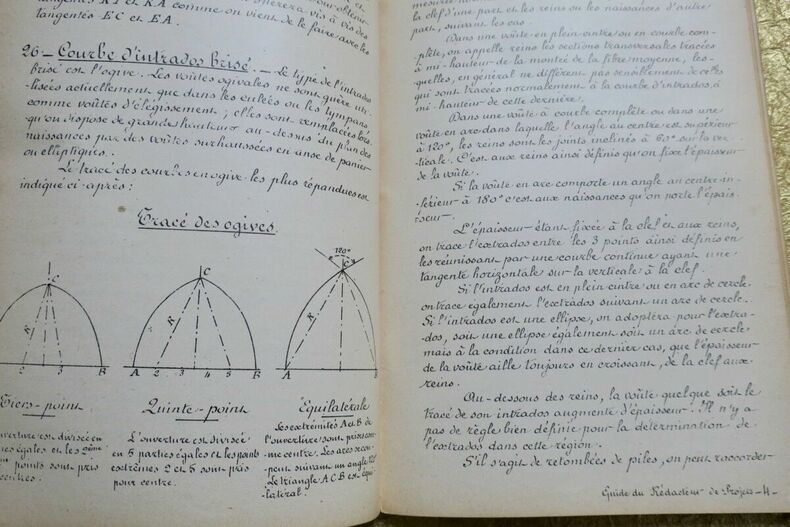 tangentes RI et RA comme on vient de le faire avec les
tangentes EC et EA.
26 - Courbe d'intrados brisé. - Le type de l'intrados
brisé est l'ogive. Les voûtes ogivales ne sont guère uti-
lisées actuellement que dans les culées ou les tympans,
comme voûtes d'élégissement; elles sont remplacées lors-
qu'on dispose de grande hauteur au-dessus du plan des
naissances par des voûtes surhaussées en anse de panier
ou elliptiques.
Le tracé des courbes en ogive les plus répandues est
indiqué ci-après:
Tracé des ogives.
C
R
2 3 B
Tiers-point
ouverture est divisée en
égales et les 2ème
points sont pris
centres.
C
R
A 2 3 4 5 B
Quinte-point
L'ouverture est divisée
en 5 parties égales et les points
extrêmes 2 et 5 sont pris
pour centre.
120°
C
R
A B
Équilatérale
Les extrémités A et B de
l'ouverture sont prises com-
me centre. Les arcs se cou-
pent suivant un angle 120°
Le triangle A C B est équi-
latéral.
la clef d'une part et les reins ou les naissances d'autre
part, suivant les cas.
Dans une voûte en plein cintre ou en courbe com-
plète, on appelle reins les sections transversales tracées
à mi-hauteur de la montée de la fibre moyenne, les-
quelles, en général ne diffèrent pas sensiblement de celles
qui sont tracées normalement à la courbe d'intrados, à
mi-hauteur de cette dernière.
Dans une voûte à courbe complète ou dans une
voûte en arc dans laquelle l'angle au centre est supérieur
à 120°, les reins sont les joints inclinés à 60° sur la ver-
ticale. C'est aux reins ainsi définis qu'on fixe l'épaisseur
de la voûte.
Si la voûte en arc comporte un angle au centre in-
férieur à 180° c'est aux naissances qu'on porte l'épais-
seur.
L'épaisseur étant fixée à la clef et aux reins,
on trace l'extrados entre les 3 points ainsi définis en
les réunissant par une courbe continue ayant une
tangente horizontale sur la verticale à la clef.
Si l'intrados est en plein cintre ou en arc de cercle
on trace également l'extrados suivant un arc de cercle.
Si l'intrados est une ellipse, on adoptera pour l'extra-
dos, soit une ellipse également soit un arc de cercle
mais à la condition dans ce dernier cas, que l'épaisseur
de la voûte aille toujours en croissant, de la clef aux
reins.
Au-dessous des reins, la voûte quelque soit le
tracé de son intrados augmente d'épaisseur. Il n'y a
pas de règle bien définie pour la détermination de
l'extrados dans cette région.
S'il s'agit de retombées de piles, on peut raccorder
Guide du Rédacteur de Projets - 4 -